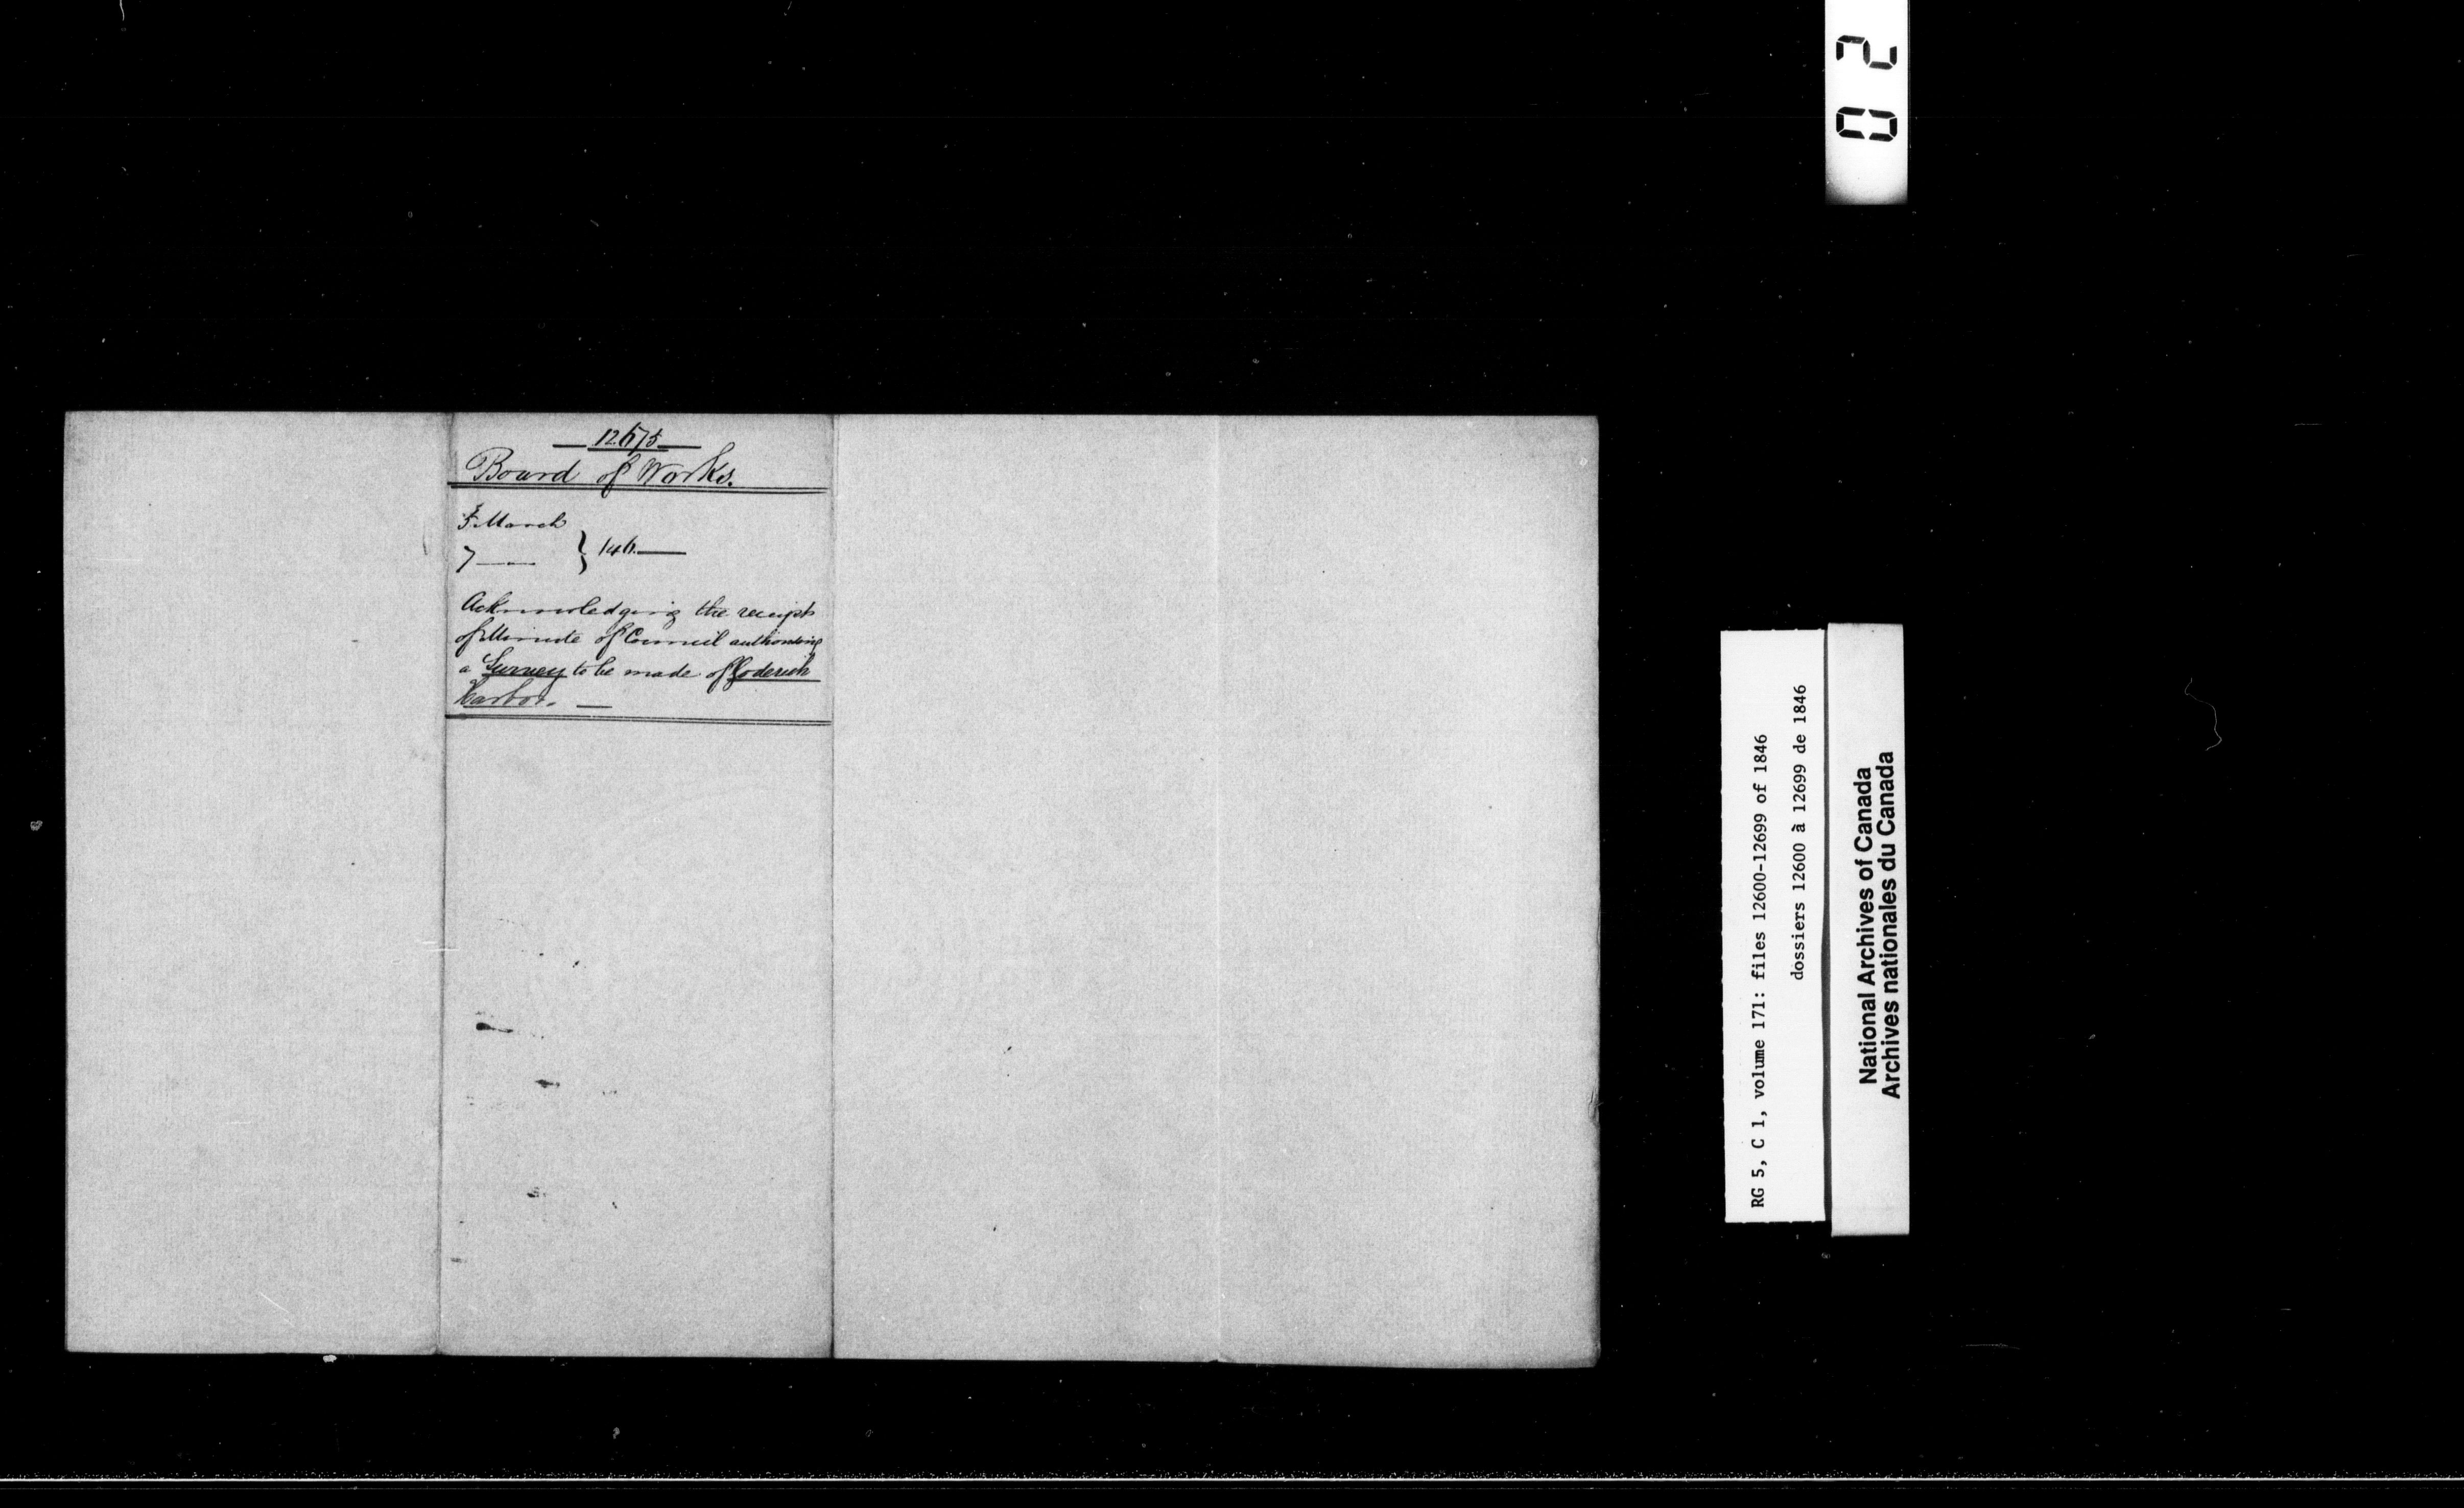 12675
Board of Works.
5 March
7 —— } 146. ——
Acknowledging the receipt
of Minute of Council authorising
a Survey to be made of Goderich
harbor. —
02
RG 5, C 1, volume 171: files 12600-12699 of 1846
dossiers 12600 à 12699 de 1846
National Archives of Canada
Archives nationales du Canada